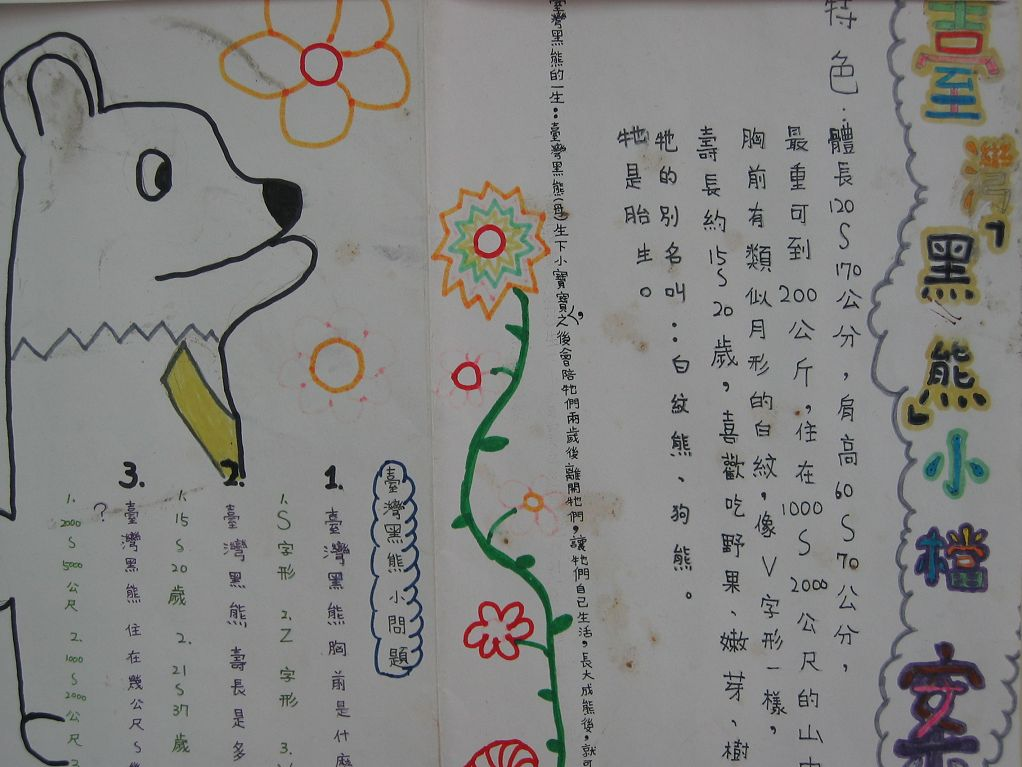 臺灣「黑熊」小檔案
特色:體長120S170公分,肩高60S70公分,
最重可到200公斤,住在1000S2000公尺的山
胸前有類似月形的白紋,像V字形一樣,
壽長約15S20歲,喜歡吃野果、嫩芽、樹
牠的別名叫:白紋熊、狗熊。
牠是胎生。
臺灣黑熊的一生:臺灣黑熊(母)生下小寶寶之後,會陪牠們兩歲後離開牠們,讓牠們自己生活,長大成熊後,就可
臺灣黑熊小問題
1.臺灣黑熊胸前是什麼
1.S字形 2.Z字形 3.
2.臺灣黑熊壽長是多
1.15S20歲 2.21S37歲
3.臺灣黑熊住在幾公尺S幾
?
1.2000S5000公尺 2.1000S2000公尺 3